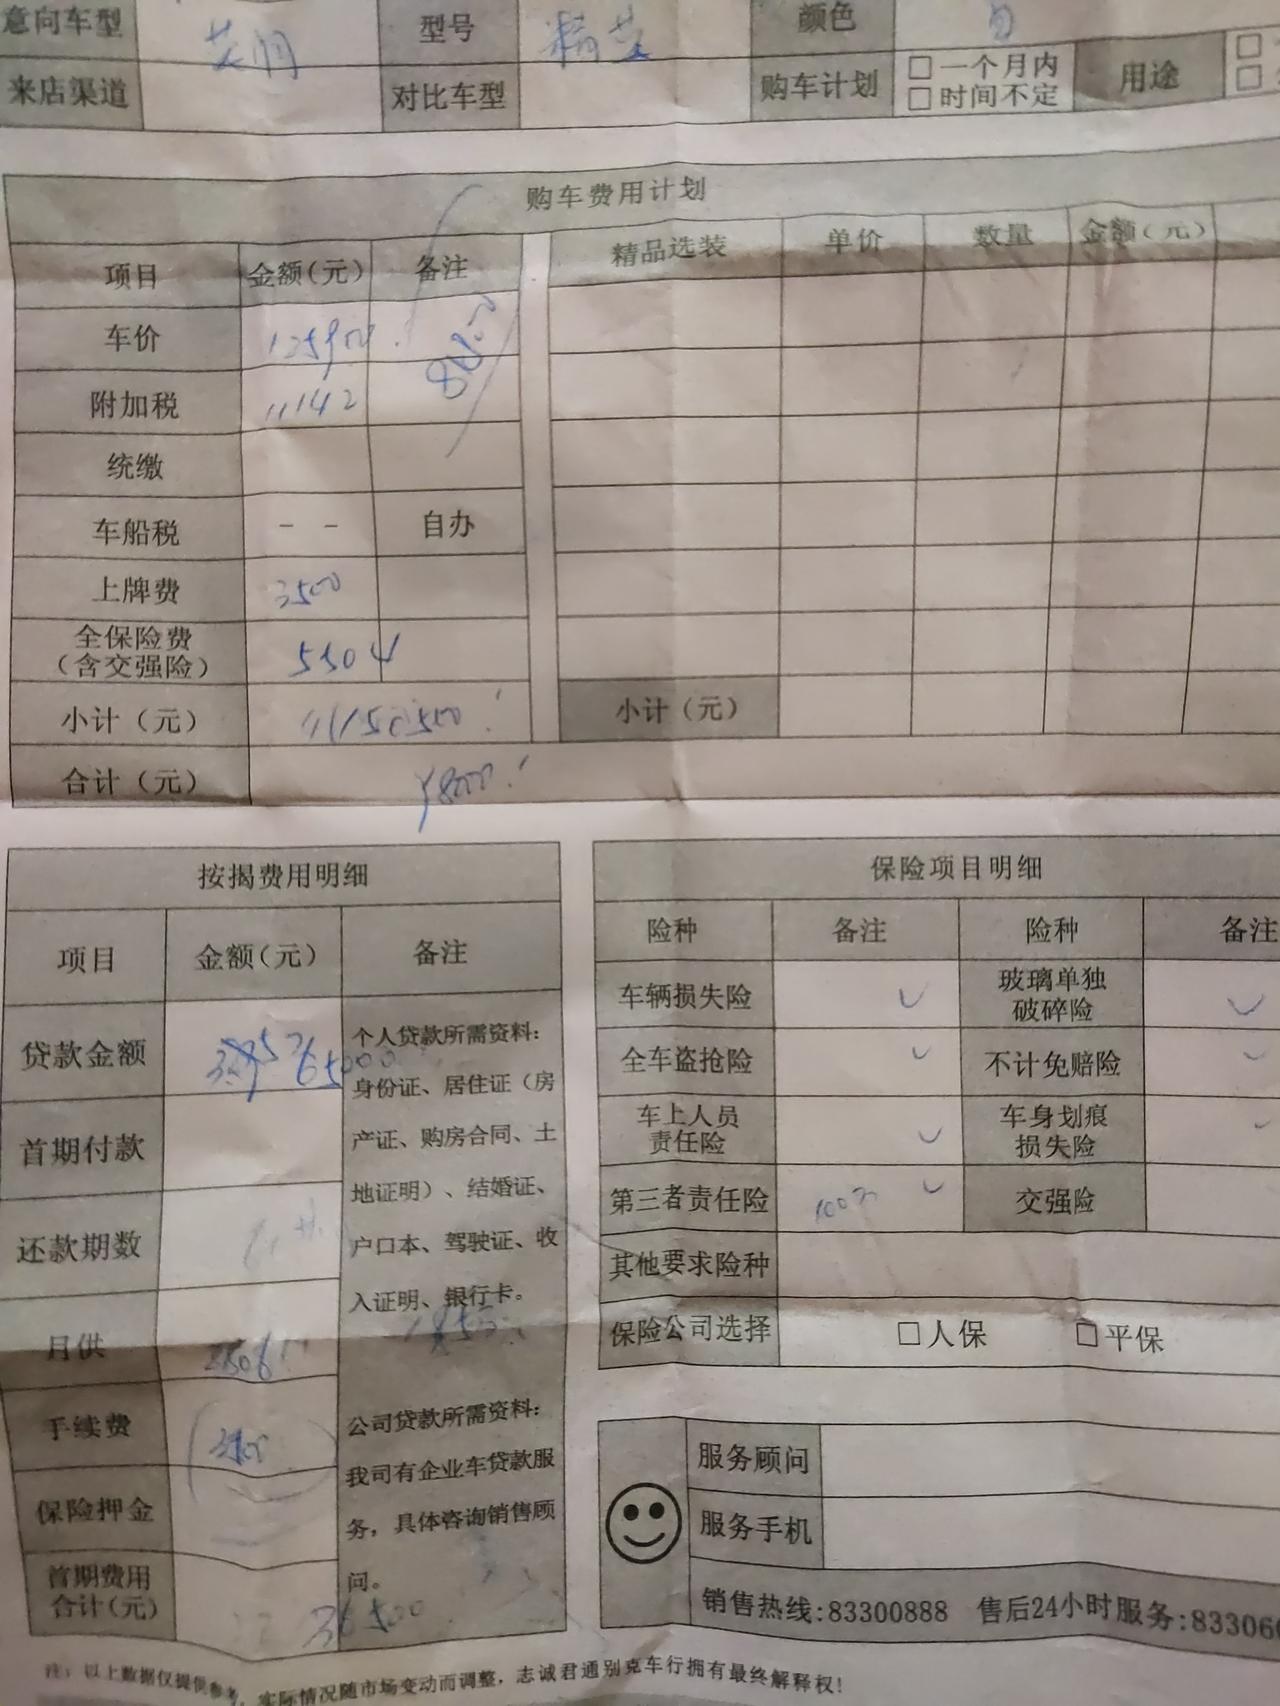 意向车型 英朗 型号 精英 颜色 白
来店渠道 对比车型 购车计划 □一个月内 □时间不定 用途
购车费用计划
项目 金额(元) 备注 精品选装 单价 数量 金额(元)
车价 125900
附加税 11142
统缴
车船税 - - 自办
上牌费 3500
全保险费(含交强险) 5504
小计(元)
小计(元)
合计(元)
按揭费用明细
项目 金额(元) 备注
贷款金额
首期付款
还款期数
月供
手续费
保险押金
首期费用合计(元) 36500
个人贷款所需资料:
身份证、居住证(房
产证、购房合同、土
地证明)、结婚证、
户口本、驾驶证、收
入证明、银行卡。
公司贷款所需资料:
我司有企业车贷款服
务,具体咨询销售顾
问。
保险项目明细
险种 备注 险种 备注
车辆损失险 玻璃单独破碎险
全车盗抢险 不计免赔险
车上人员责任险 车身划痕损失险
第三者责任险 100万 交强险
其他要求险种
保险公司选择 □人保 □平保
服务顾问
服务手机
销售热线:83300888 售后24小时服务:833060
注:以上数据仅提供参考,实际情况随市场变动而调整,志诚君通别克车行拥有最终解释权!